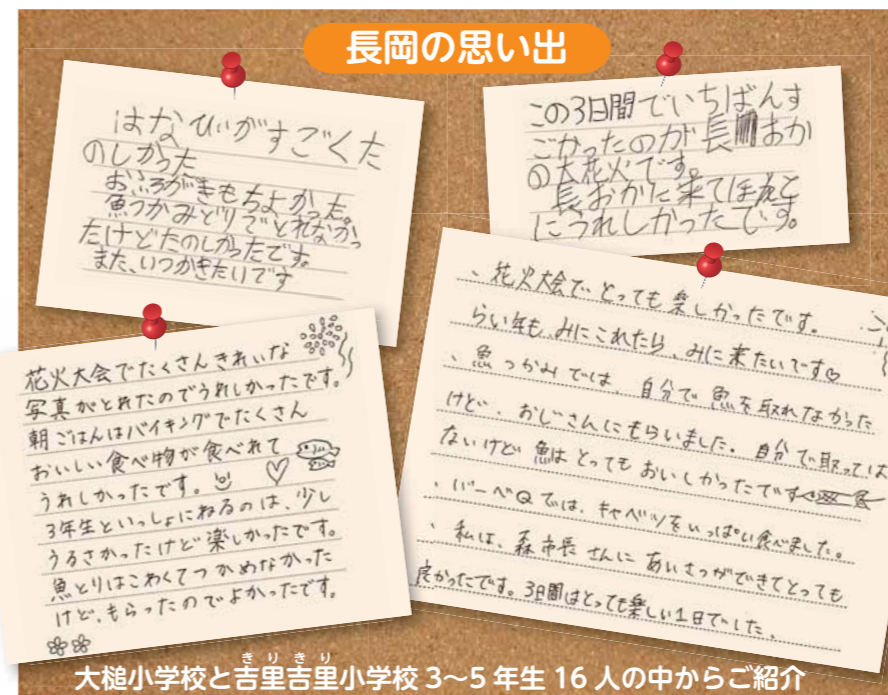 長岡の思い出
はなびぃがすごくた
のしかった
おふろがきもちよかった。
魚つかみどりでとれなかっ
たけどたのしかったです。
また、いつかきたいです
この3日間でいちばんす
ごかったのが長おか
の大花火です。
長おかに来てほんと
にうれしかったです。
花火大会でたくさんきれいな
写真がとれたのでうれしかったです。
朝ごはんはバイキングでたくさん
おいしい食べ物が食べれて
うれしかったです。
3年生といっしょにねるのは、少し
うるさかったけど楽しかったです。
魚とりはこわくてつかめなかった
けど、もらったのでよかったです。
、花火大会で、とっても楽しかったです。
らい年も、みにこれたら、みに来たいです♡
、魚つかみでは、自分で魚を取れなかった
けど、おじさんにもらいました。自分で取っては
ないけど魚はとってもおいしかったです
、バーベQでは、キャベツをいっぱい食べました。
、私は、森市長さんにあいさつができてとっても
良かったです。3日間はとっても楽しい1日でした、
きりきり
大槌小学校と吉里吉里小学校3〜5年生16人の中からご紹介